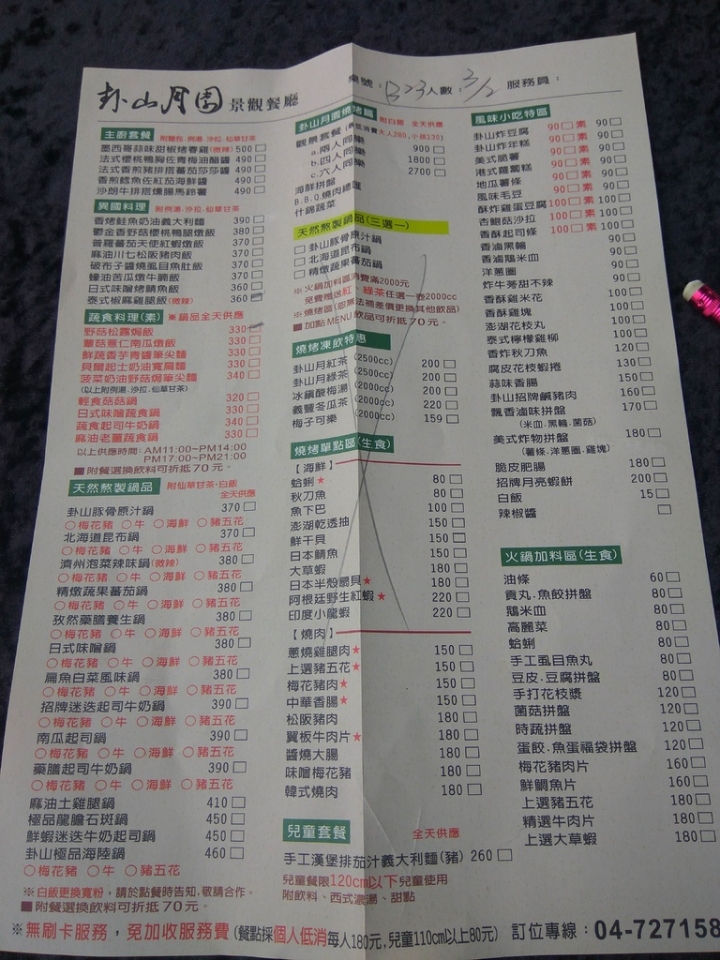 卦山月園 景觀餐廳
桌號： B23 人數 3/2 服務員：
主廚套餐 附麵包.例湯.沙拉.仙草甘茶
墨西哥蒜味甜椒烤春雞(微辣) 500
法式櫻桃鴨胸佐青梅油醋醬 490
法式香煎豬排搭蕃茄莎莎醬 490
香煎鱈魚佐紅茄海鮮醬 490
沙朗牛排搭燻腸馬鈴薯 490
異國料理 附例湯.沙拉.仙草甘茶
香烤鮭魚奶油義大利麵 390
鄉會野菇櫻桃鴨腿燉飯 380
普羅蕃茄天使紅蝦燉飯 370
麻油川七松阪豬肉飯 370
破布子醬燒虱目魚肚飯 370
蠔油苦瓜燉牛腩飯 370
日式味噌烤鯖魚飯 360
泰式椒麻雞腿飯(微辣) 360
蔬食料理(素) ※鍋品全天供應
野菇松露焗飯 330
蕈菇薏仁南瓜燉飯 330
鮮蔬香芋青醬筆尖麵 330
貝爾起士奶油寬扁麵 330
菠菜奶油野菇焗筆尖麵 340
(以上附例湯.沙拉.仙草甘茶)
輕食菇菇鍋 320
日式味噌蔬食鍋 330
蔬食起司牛奶鍋 340
麻油老薑蔬食鍋 330
以上供應時間：AM11:00~PM14:00
PM17:00~PM21:00
■附餐選換飲料可折抵70元。
天然熬製鍋品 附仙草甘茶.白飯
全天供應
卦山豚骨原汁鍋 370
○梅花豬 ○牛 ○海鮮 ○豬五花
北海道昆布鍋 370
○梅花豬 ○牛 ○海鮮 ○豬五花
濟州泡菜辣味鍋(微辣) 380
○梅花豬 ○牛 ○海鮮 ○豬五花
精燉蔬果蕃茄鍋 380
○梅花豬 ○牛 ○海鮮 ○豬五花
孜然藥膳養生鍋 380
○梅花豬 ○牛 ○海鮮 ○豬五花
日式味噌鍋 380
○梅花豬 ○牛 ○海鮮 ○豬五花
扁魚白菜風味鍋 380
○梅花豬 ○牛 ○海鮮 ○豬五花
招牌迷迭起司牛奶鍋 390
○梅花豬 ○牛 ○海鮮 ○豬五花
南瓜起司鍋 390
○梅花豬 ○牛 ○海鮮 ○豬五花
藥膳起司牛奶鍋 390
○梅花豬 ○牛 ○海鮮 ○豬五花
麻油土雞腿鍋 410
極品龍膽石斑鍋 450
鮮蝦迷迭牛奶起司鍋 450
卦山極品海陸鍋 460
○梅花豬 ○牛 ○豬五花
※白飯更換寬粉，請於點餐時告知，敬請合作。
■附餐選換飲料可折抵70元。
卦山月園燒烤篇 附白飯 全天供應
觀景套餐
a.兩人同樂 900
b.四人同樂 1800
c.六人同樂 2700
海鮮拼盤
B.B.Q.燒肉總匯
什錦蔬菜
天然熬製鍋品(三選一)
卦山豚骨原汁鍋
北海道昆布鍋
精燉蔬果蕃茄鍋
※火鍋加料區消費滿2000元
免費贈送紅、綠茶任選一壺2000cc
■加點MENU飲品可折抵70元。
燒烤凍飲特惠
卦山月紅茶 (2500cc) 200
卦山月綠茶 (2500cc) 200
冰鎮酸梅湯 (2000cc) 200
義豐冬瓜茶 (2000cc) 220
梅子可樂 (2000cc) 159
燒烤單點區(生食)
【海鮮】
蛤蜊★ 80
秋刀魚 80
魚下巴 100
澎湖乾透抽 150
鮮干貝 150
日本鯖魚 150
大草蝦 180
日本半殼扇貝★ 180
阿根廷野生紅蝦★ 220
印度小龍蝦 220
【燒肉】
蔥燒雞腿肉★ 150
上選豬五花★ 150
梅花豬肉★ 150
中華香腸★ 150
松阪豬肉 180
翼板牛肉片★ 180
醬燒大腸 180
味噌梅花豬 180
韓式燒肉 180
兒童套餐 全天供應
手工漢堡排茄汁義大利麵(豬) 260
兒童餐限120cm以下兒童使用
附飲料、西式濃湯、甜點
風味小吃特區
卦山炸豆腐 90 素 90
卦山炸年糕 90 素 90
美式脆薯 90
港式蘿蔔糕 90
地瓜薯條 90
風味毛豆 90
酥炸雞蛋豆腐 100 素 90
杏鮑菇沙拉 100 素 90
香酥起司條 100 素 90
香滷黑輪 90
香滷鵝米血 90
洋蔥圈 90
炸牛蒡甜不辣 90
香酥雞米花 100
香酥雞塊 100
澎湖花枝丸 100
泰式檸檬雞柳 100
香炸秋刀魚 120
腐皮花枝蝦捲 130
蒜味香腸 150
卦山招牌鹹豬肉 160
飄香滷味拼盤 170
(米血.黑輪.菌菇)
美式炸物拼盤 180
(薯條.洋蔥圈.雞塊)
脆皮肥腸 180
招牌月亮蝦餅 200
白飯 15
辣椒醬
火鍋加料區(生食)
油條 60
貢丸.魚餃拼盤 80
鵝米血 80
高麗菜 80
蛤蜊 80
手工虱目魚丸 80
豆皮.豆腐拼盤 80
手打花枝漿 120
菌菇拼盤 120
時蔬拼盤 120
蛋餃.魚蛋福袋拼盤 120
梅花豬肉片 160
鮮鯛魚片 160
上選豬五花 180
精選牛肉片 180
上選大草蝦 180
※無刷卡服務，免加收服務費(餐點採個人低消每人180元,兒童110cm以上80元) 訂位專線：04-727158